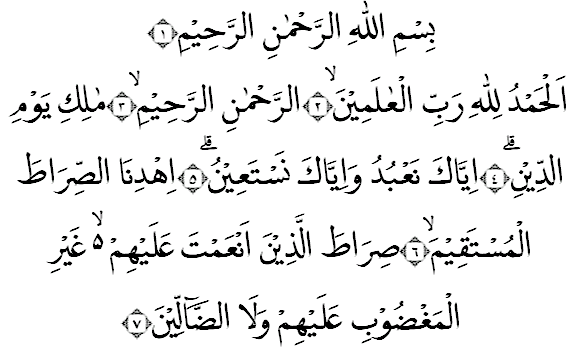 بِسْمِ اللهِ الرَّحْمٰنِ الرَّحِيْمِ ۝١
اَلْحَمْدُ لِلهِ رَبِّ الْعٰلَمِيْنَۙ ۝٢ الرَّحْمٰنِ الرَّحِيْمِۙ ۝٣ مٰلِكِ يَوْمِ
الدِّيْنِۗ ۝٤ اِيَّاكَ نَعْبُدُ وَاِيَّاكَ نَسْتَعِيْنُۗ ۝٥ اِهْدِنَا الصِّرَاطَ
الْمُسْتَقِيْمَۙ ۝٦ صِرَاطَ الَّذِيْنَ اَنْعَمْتَ عَلَيْهِمْ ۙ ۵ غَيْرِ
الْمَغْضُوْبِ عَلَيْهِمْ وَلَا الضَّاۤلِّيْنَ ۝٧